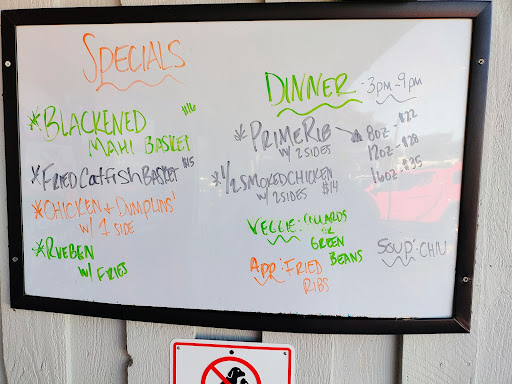 SPECIALS
*BLACKENED $16
MAHI BASKET
*FRIED CATFISH BASKET $15
*CHICKEN + DUMPLINS'
W/ 1 SIDE
*RUEBEN
W/ FRIES
DINNER -3PM-9PM
*PRIME RIB
W/ 2 SIDES
8oz - $22
12oz - $28
16oz - $35
*1/2 SMOKED CHICKEN
W/ 2 SIDES $14
VEGGIE: COLLARDS
OR
GREEN
BEANS
APP: FRIED
RIBS
SOUP: CHILI